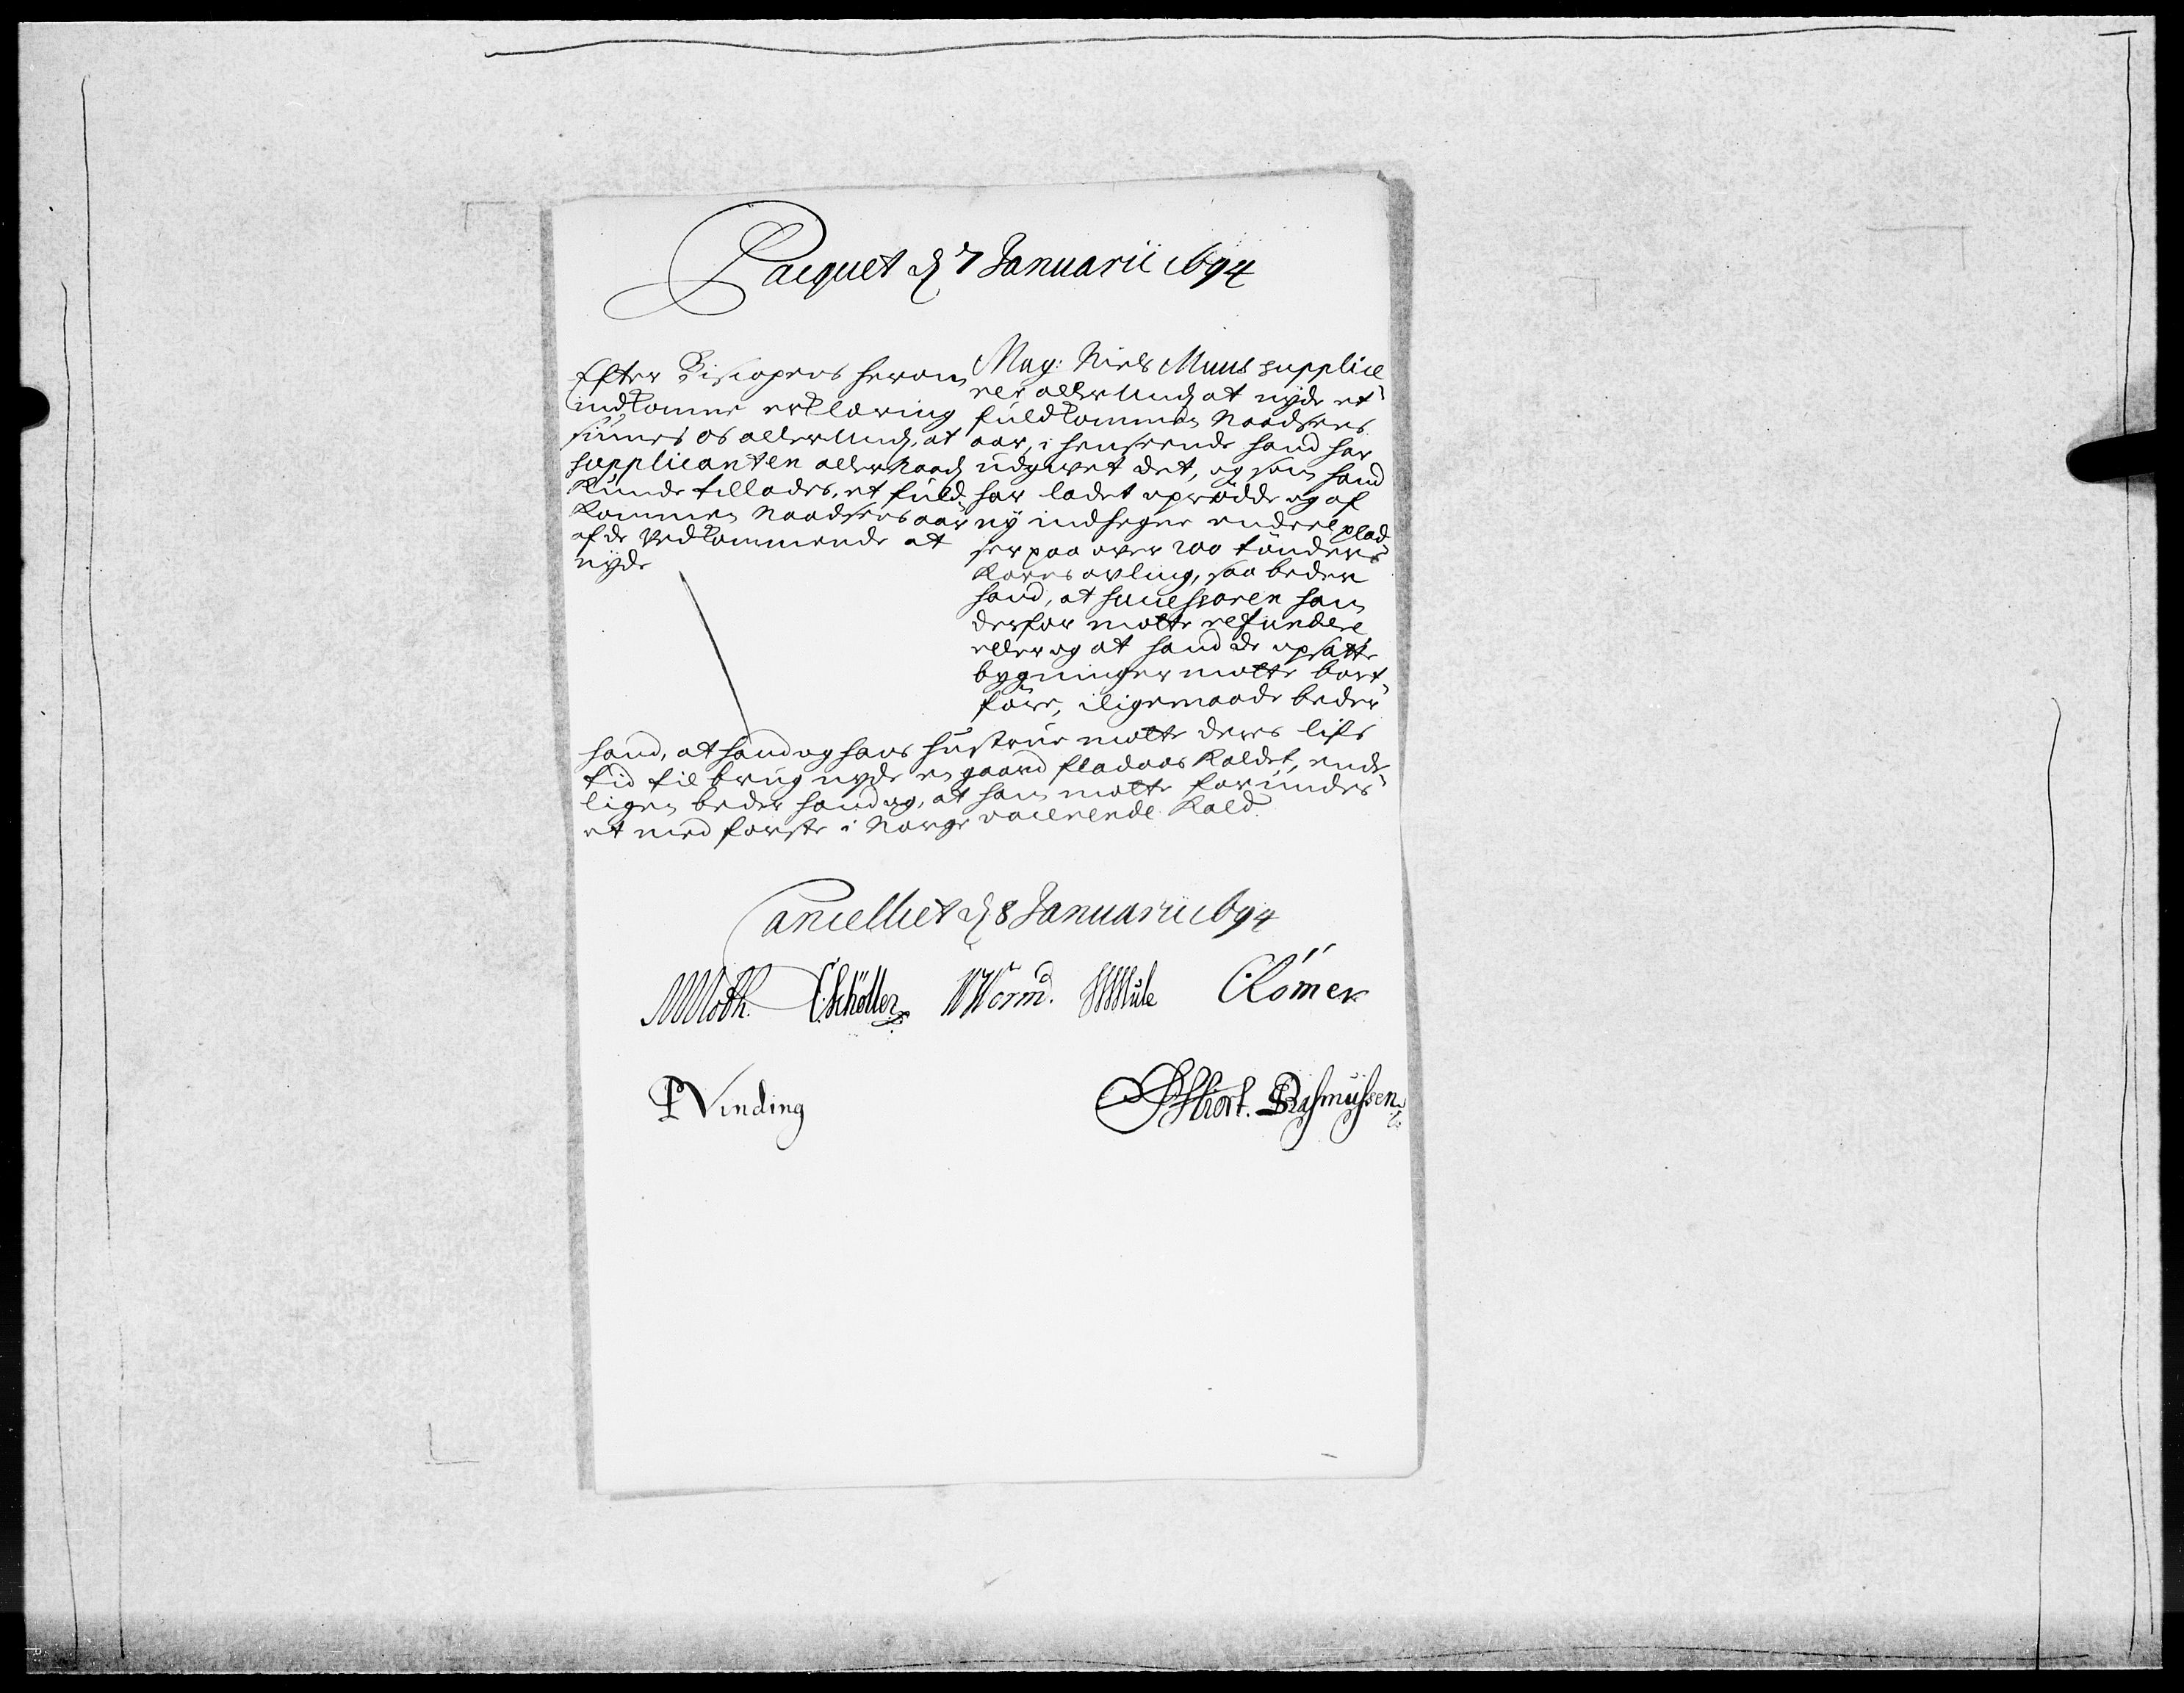 Pacquet d 7 Januarii 1694
Efter Biscopens herom
indkomne erklæring
siunes os allerund, at
supplicanten allernaad
kunde tillades, et fuld,
kommen Naadsens aar
af de vedkommende at
nyde
Mag: Niels Muus supplice
rer allerund at nyde et
fuldkommen Naadsens
aar, i henseende hand har
udgivet det, og som hand
har ladet oprødde og af
ny indhegne endeel plad
ser paa over 200 tønders
Korns avling, saa beder
hand, at successoren ham
derfor motte refundere
eller og at hand de opsatte
bygninger motte bort
føre, iligemaade beder
hand, at hand og hans hustrue motte deres lifs
tid til brug nyde en gaard Fladaas kaldet, ende
ligen beder hand og, at ham motte forundes
et med første i Norge vacerende Kald.
Cancelliet d 8 Januarii 1694
MMoth. CSchøller WWorm. HMule CRömer
PVinding
Hiort. SRasmussen